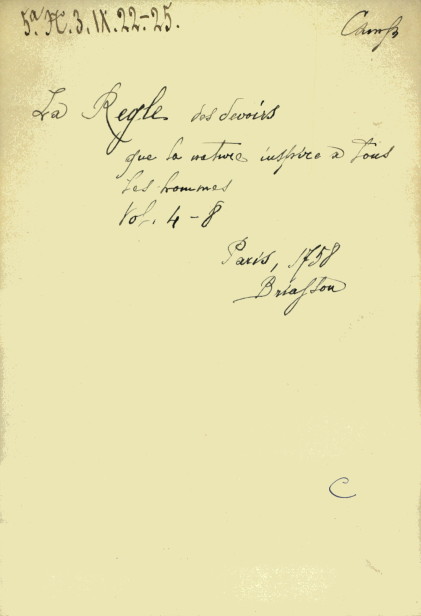 5ª A.3.IX.22-25.
La Regle des devoirs
que la nature inspire a tous
les hommes
Vol. 4-8
Paris, 1758
Briasson
C